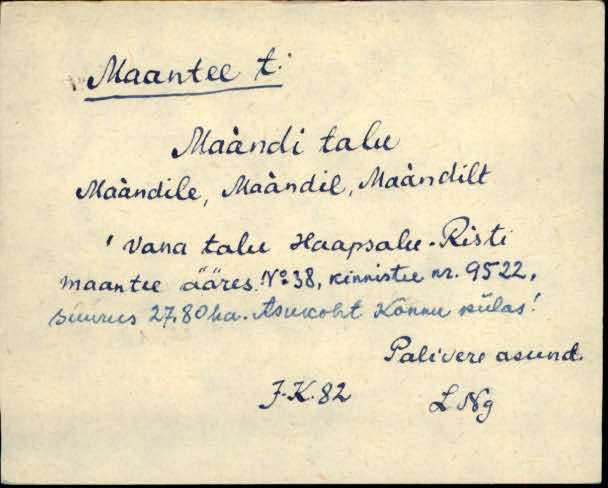 Maantee t.
Maàndi talu
Maàndile, Maàndil, Maàndilt
' Vana talu Haapsalu-Risti
maantee ääres. №38, kinnistu nr. 9522,
suurus 27.80 ha. Asukoht Kõnnu külas!
Palivere asund.
J.K.82
L Ng